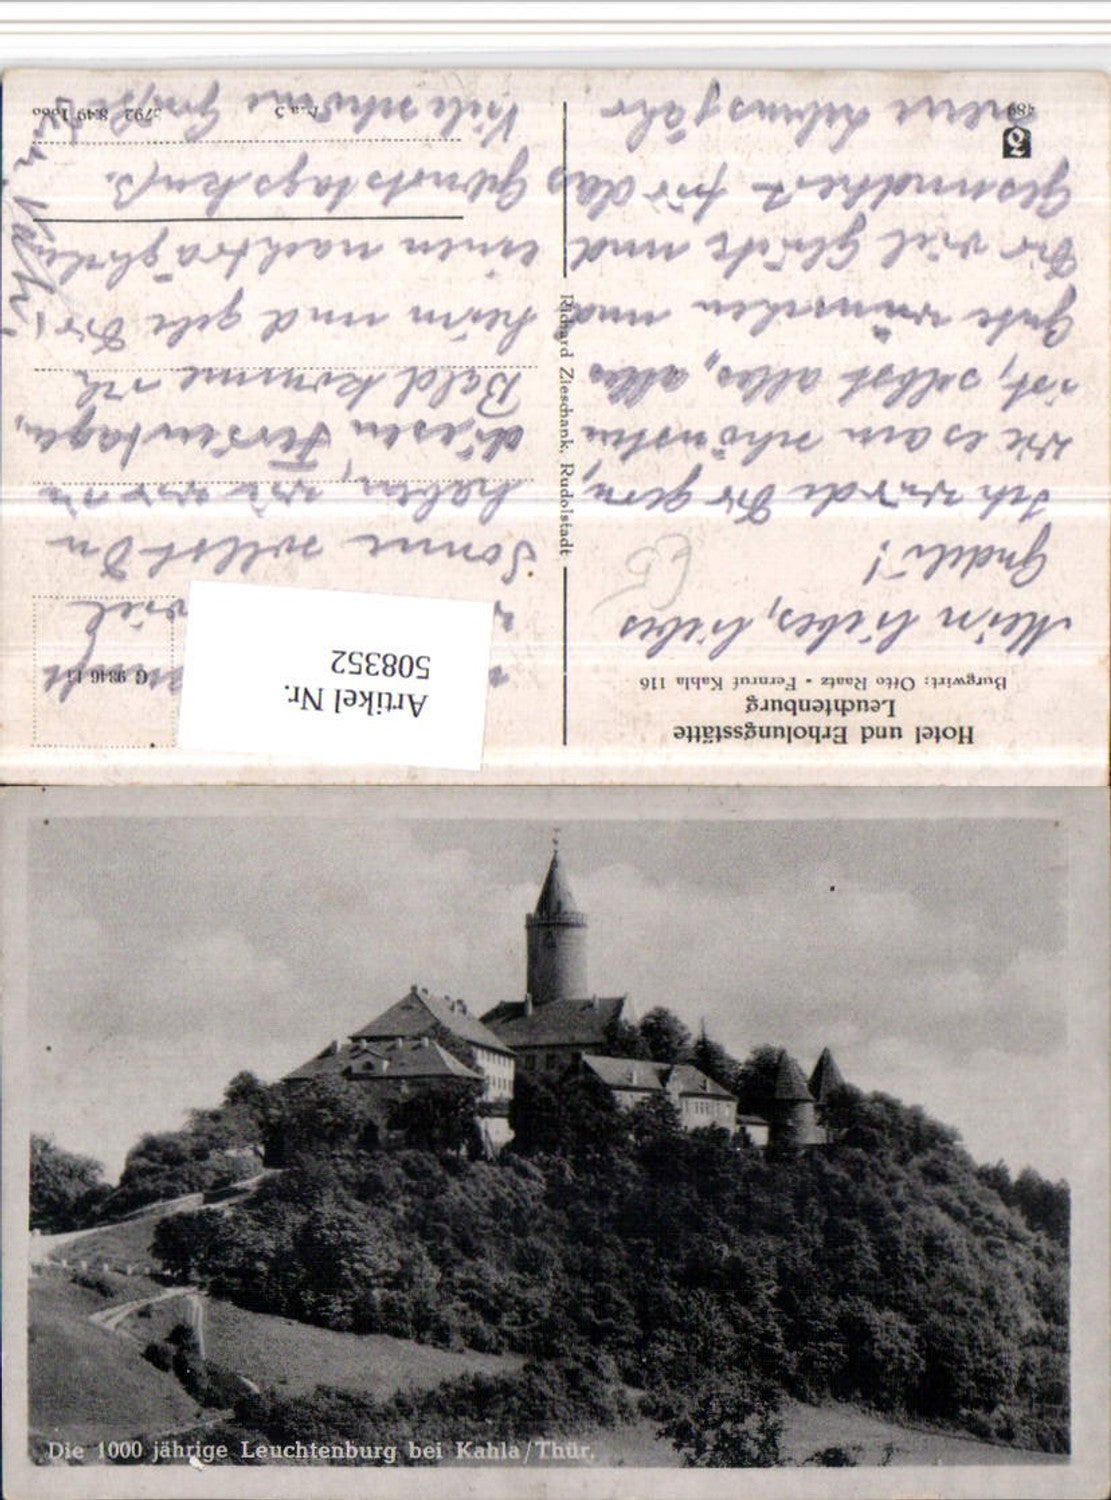 Hotel und Erholungsstätte
Leuchtenburg
Burgwirt: Otto Raatz - Fernruf Kahla 116
Mein liebes, liebes
Gudel!
Ich würde Dir gern,
wie es am schönsten
ist, selbst alles, alles
Gute wünschen und
Dir viel Glück und
Gesundheit für das
neue Lebensjahr
489
Richard Zieschank, Rudolstadt
G 9846 11
Artikel Nr.
508352
viel
Sonne sollst Du
haben, wie wir in
diesen Ferientagen.
Bald komme ich
heim und gebe Dir
einen nachträglichen
Geburtstagskuß.
Viele schöne Grüße
8792 8.49 1000
Die 1000 jährige Leuchtenburg bei Kahla/Thür.